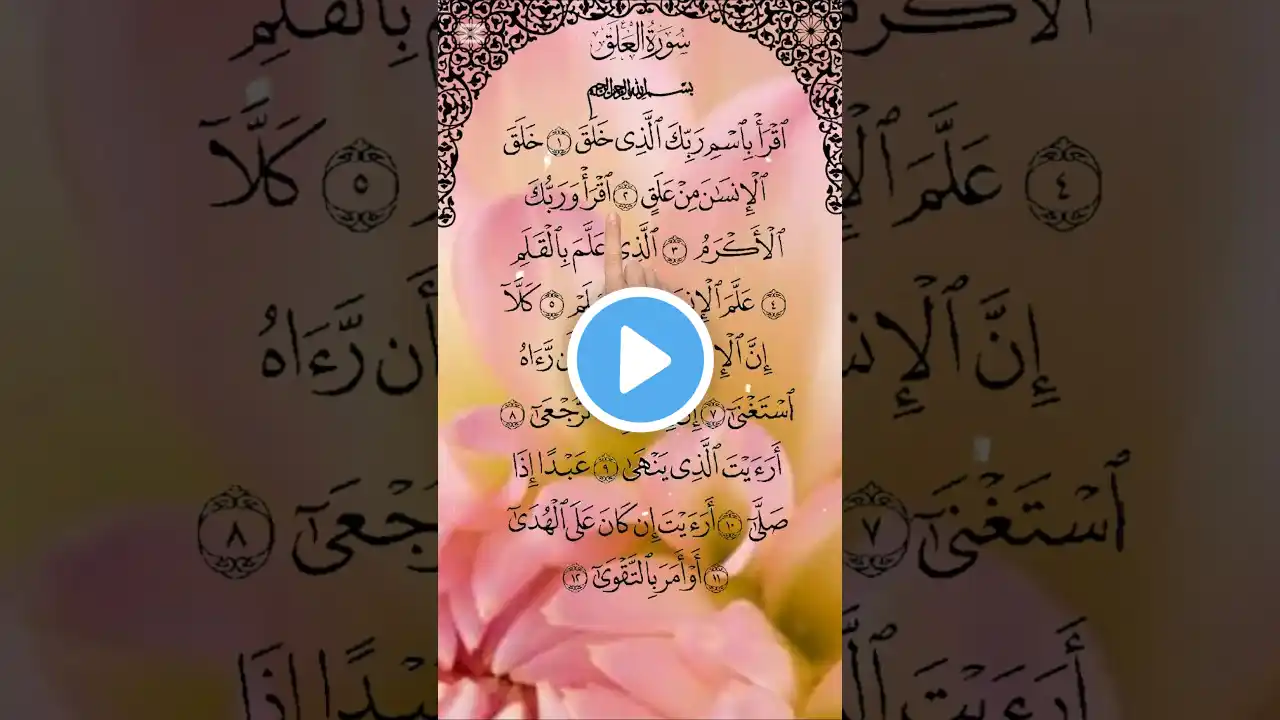 سُورَةُ الْعَلَقِ
بِسْمِ اللَّهِ الرَّحْمَٰنِ الرَّحِيمِ
ٱقْرَأْ بِٱسْمِ رَبِّكَ ٱلَّذِى خَلَقَ ١ خَلَقَ
ٱلْإِنسَٰنَ مِنْ عَلَقٍ ٢ ٱقْرَأْ وَرَبُّكَ
ٱلْأَكْرَمُ ٣ ٱلَّذِى عَلَّمَ بِٱلْقَلَمِ
٤ عَلَّمَ ٥ كَلَّآ
إِنَّ رَّءَاهُ
ٱسْتَغْنَىٰٓ ٧ ٨
أَرَءَيْتَ ٱلَّذِى يَنْهَىٰ ٩ عَبْدًا إِذَا
صَلَّىٰٓ ١٠ أَرَءَيْتَ إِن كَانَ عَلَى ٱلْهُدَىٰٓ
١١ أَوْ أَمَرَ بِٱلتَّقْوَىٰٓ ١٢